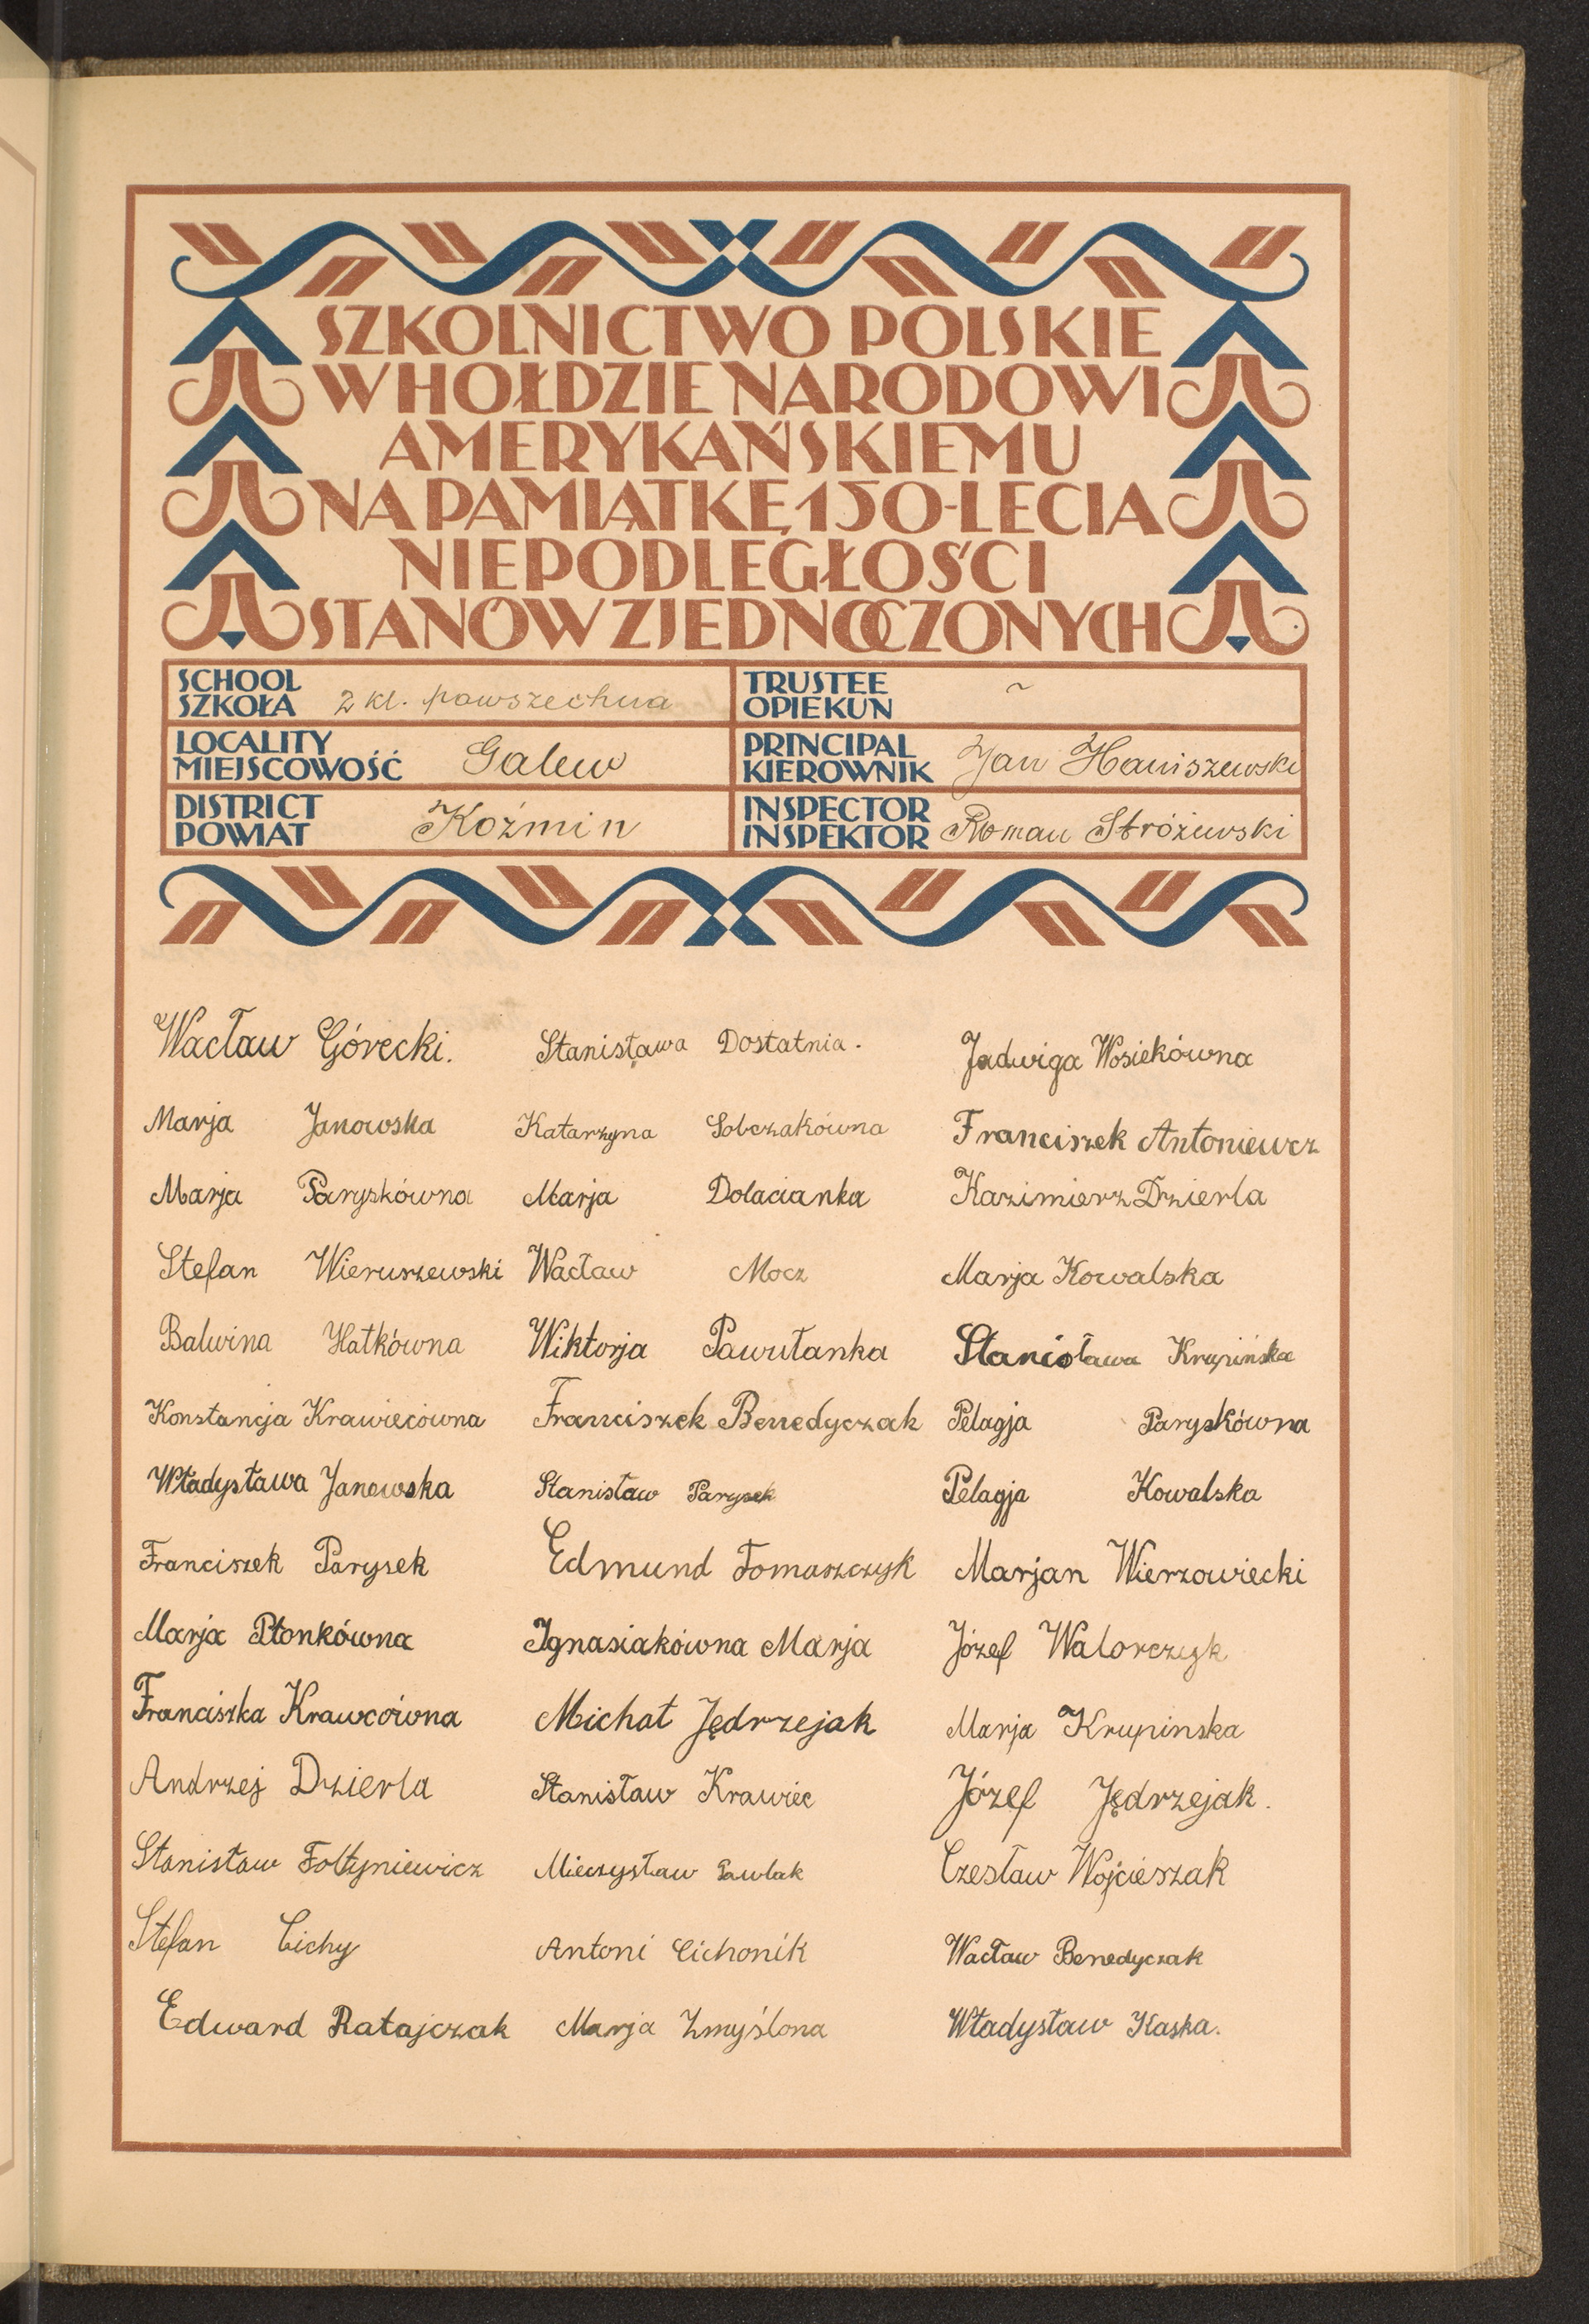 SZKOLNICTWO POLSKIE
W HOŁDZIE NARODOWI
AMERYKAŃSKIEMU
NA PAMIĄTKĘ 150-LECIA
NIEPODLEGŁOŚCI
STANÓW ZJEDNOCZONYCH
SCHOOL
SZKOŁA 2 kl. powszechna
TRUSTEE
OPIEKUN ~
LOCALITY
MIEJSCOWOŚĆ Galew
PRINCIPAL
KIEROWNIK Jan Haniszewski
DISTRICT
POWIAT Koźmin
INSPECTOR
INSPEKTOR Roman Stróżewski
Wacław Górecki. Stanisława Dostatnia. Jadwiga Wosiekówna
Marja Janowska Katarzyna Sobczakówna Franciszek Antoniewcz
Marja Paryskówna Marja Dolacianka Kazimierz Dzierla
Stefan Wieruszewski Wacław Mocz Marja Kowalska
Balwina Hatkówna Wiktorja Pawułanka Stanisława Krupińska
Konstancja Krawiecówna Franciszek Benedyczak Pelagja Paryskówna
Władysława Janowska Stanisław Parysek Pelagja Kowalska
Franciszek Parysek Edmund Tomaszczyk Marjan Wierzowiecki
Marja Płonkówna Ignasiakówna Marja Józef Walorczyk
Franciszka Krawcówna Michał Jędrzejak Marja Krupinska
Andrzej Dzierla Stanisław Krawiec Józef Jędrzejak.
Stanisław Fołtyniewicz Mieczysław Pawlak Czesław Wojcieszak
Stefan Cichy Antoni Cichonik Wacław Benedyczak
Edward Ratajczak Marja Zmyślona Władysław Kaska.